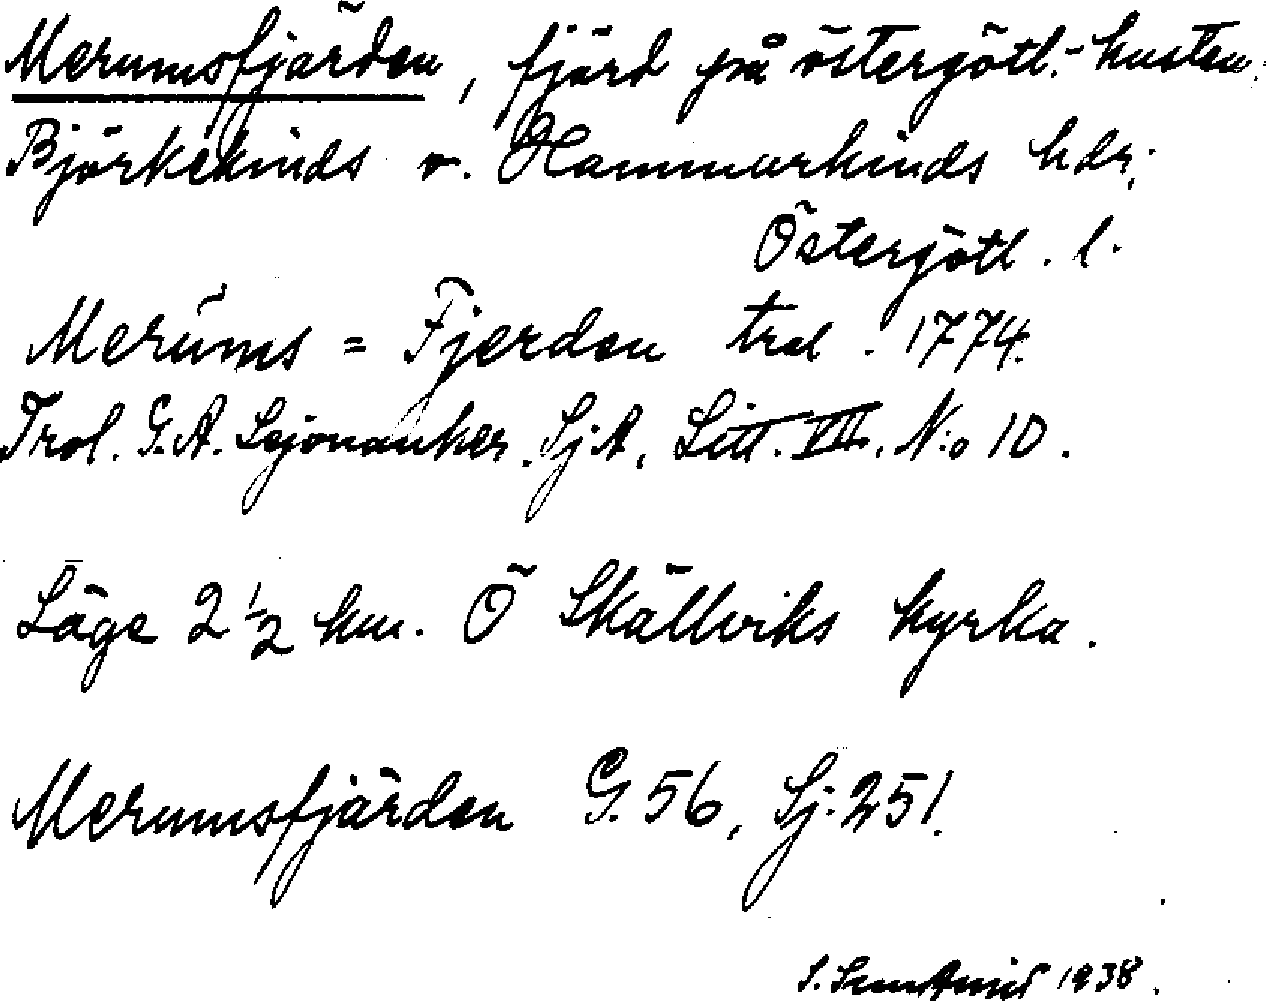 Merumsfjärden, fjärd på östergötl.-kusten.
Björkekinds o. Hammarkinds hdr;
Östergötl. l.
Merúms = Fjerden trol. 1774.
Trol. G. A. Lejonanker. Sj.A, Litt. VII. N:o 10.
Läge 2 1/2 km. Ö Skällviks kyrka.
Merumsfjärden G. 56, Sj: 251.
1938.